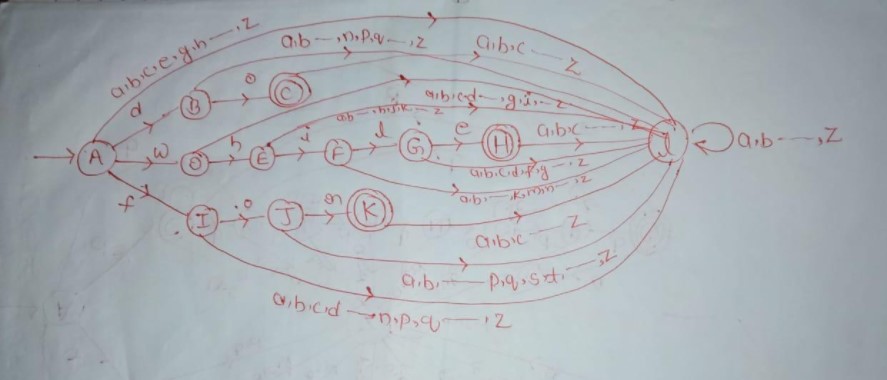 a,b,c,e,g,h—,z
a,b—,n,p,q—,z
a,b,c—z
d
B
o
C
a,b,c,d—,g,i,—z
A
w
h
E
i
F
l
G
e
H
a,b,c—,z
a,b—,z
a,b,c,d,f,g—,z
a,b,—,k,m,n—,z
f
I
o
J
K
a,b,c—z
a,b,—p,q,s,t,—,z
a,b,c,d—n,p,q—,z